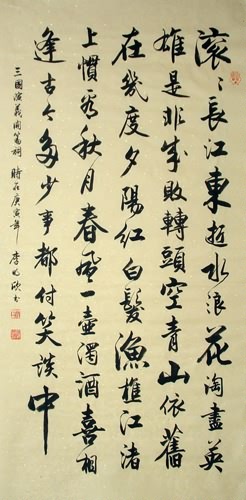 滾々長江東逝水浪花淘盡英
雄是非成敗轉頭空青山依舊
在幾度夕陽紅白髮漁樵江渚
上慣看秋月春風一壺濁酒喜相
逢古今多少事都付笑談中
三國演義開篇詞 時在庚寅年 李